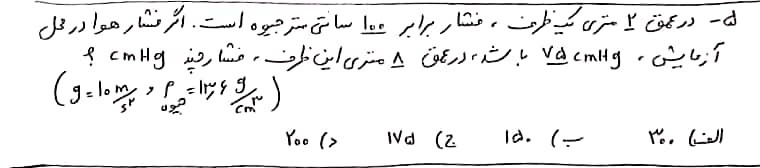 ۵- در عمق ۲ متری یک ظرف ، فشار برابر ۱۰۰ سانتی متر جیوه است. اگر فشار هوا در محل
آزمایش ، ۷۵ cmHg باشد، در عمق ۸ متری این ظرف ، فشار چند cmHg ؟
(g=۱۰ m/s² و ρ جیوه = ۱۳٫۶ g/cm³)
الف) ۳۰۰ ب) ۱۵۰ ج) ۱۷۵ د) ۲۰۰